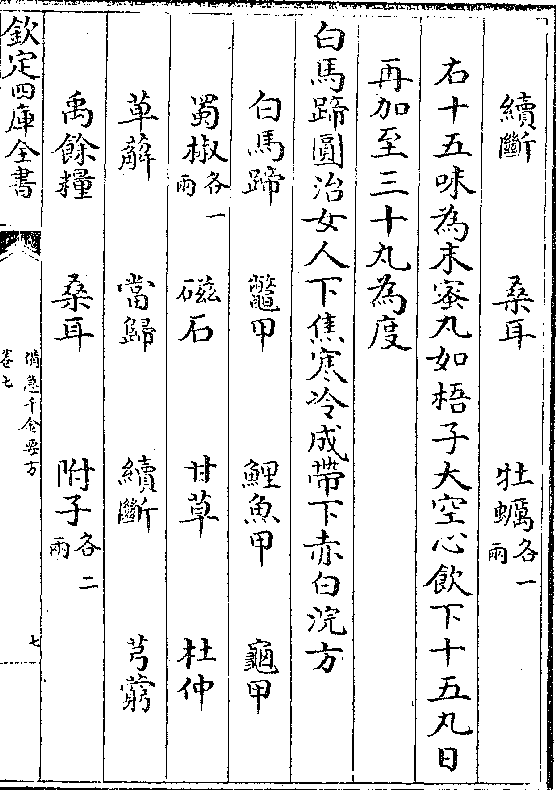 續斷 桑耳 牡蠣各一兩
右十五味為末蜜丸如梧子大空心飲下十五丸日
再加至三十丸為度
白馬蹄圓治女人下焦寒冷成帶下赤白浣方
白馬蹄 鼈甲 鯉魚甲 龜甲
蜀椒各一兩 磁石 甘草 杜仲
萆薢 當歸 續斷 芎藭
禹餘糧 桑耳 附子各二兩
欽定四庫全書 備急千金要方 卷七 七